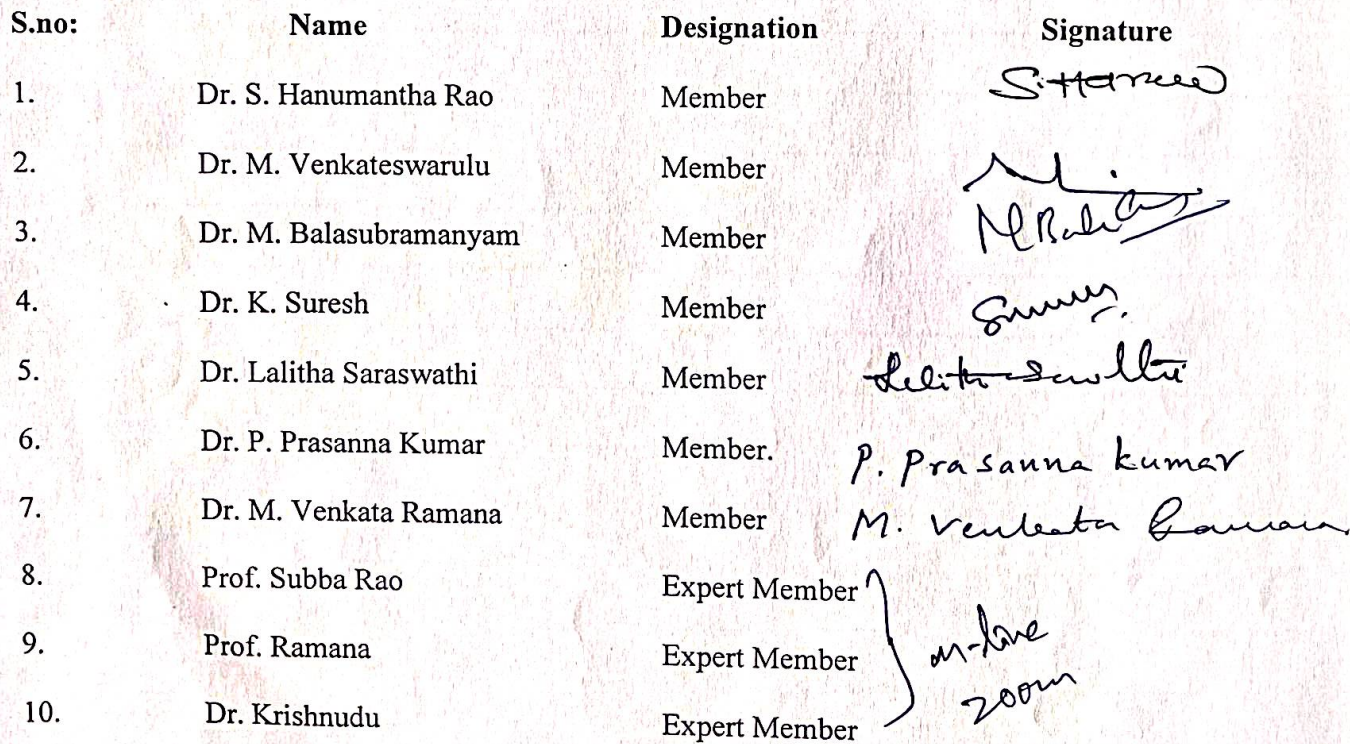 S.no: Name Designation Signature
1. Dr. S. Hanumantha Rao Member
2. Dr. M. Venkateswarulu Member
3. Dr. M. Balasubramanyam Member
4. Dr. K. Suresh Member
5. Dr. Lalitha Saraswathi Member
6. Dr. P. Prasanna Kumar Member. P. Prasanna kumar
7. Dr. M. Venkata Ramana Member M. Venkata Ramana
8. Prof. Subba Rao Expert Member
9. Prof. Ramana Expert Member on-line
zoom
10. Dr. Krishnudu Expert Member